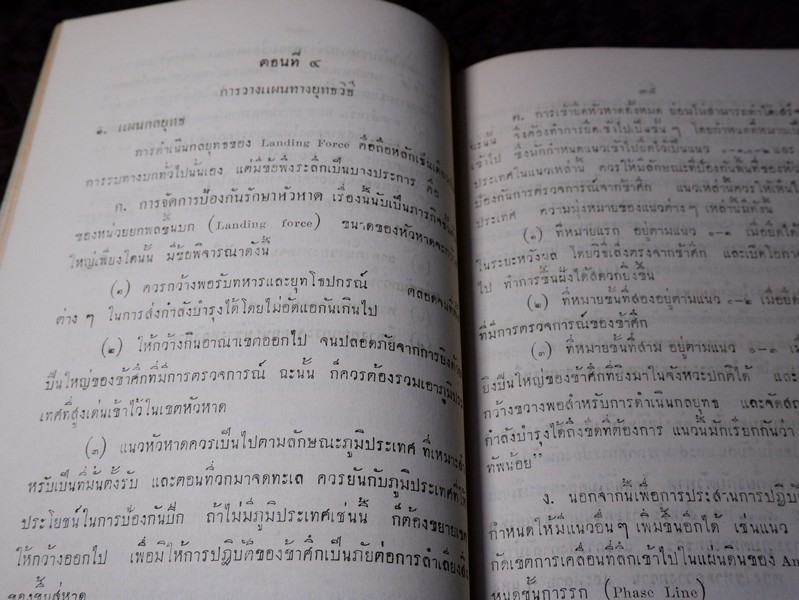 ตอนที่ ๔
การวางแผนทางยุทธวิธี
๑. แผนกลยุทธ
การดำเนินกลยุทธของ Landing Force คือถือหลักเช่นเดียวกับ
การรบทางบกทั่วไปนั้นเอง แต่มีข้อพึงระลึกเป็นบางประการ คือ
ก. การจัดการป้องกันรักษาหัวหาด เรื่องนี้นับเป็นภารกิจขั้นต้น
ของหน่วยยกพลขึ้นบก (Landing force) ขนาดของหัวหาดจะกว้าง
ใหญ่เพียงใดนั้น มีข้อพิจารณาดังนี้
(๑) ควรกว้างพอรับทหารและยุทโธปกรณ์ ตลอดจน
ต่าง ๆ ในการส่งกำลังบำรุงได้โดยไม่อัดแอกันเกินไป
(๒) ให้กว้างกินอาณาเขตออกไป จนปลอดภัยจากการยิงด้วย
ปืนใหญ่ของข้าศึกที่มีการตรวจการณ์ ฉะนั้น ก็ควรต้องรวมเอาภูมิประ
เทศที่สูงเด่นเข้าไว้ในเขตหัวหาด
(๓) แนวหัวหาดควรเป็นไปตามลักษณะภูมิประเทศ ที่เหมาะสำ
หรับเป็นที่มั่นตั้งรับ และตอนที่วกมาจดทะเล ควรยันกับภูมิประเทศที่ให้
ประโยชน์ในการป้องกันปีก ถ้าไม่มีภูมิประเทศเช่นนี้ ก็ต้องขยายเขต
ให้กว้างออกไป เพื่อมิให้การปฏิบัติของข้าศึกเป็นภัยต่อการลำเลียง
ของขึ้นสู่หาด
๓๕
ค. การเข้ายึดหัวหาดทั้งหมด ย่อมไม่สามารถทำได้เสร็จ
ฉะนั้น จึงต้องทำการยึดเข้าไปเป็นขั้น ๆ โดยกำหนดที่หมาย
เข้าไป ซึ่งมักกำหนดแนวเข้าไปยึดไว้เป็นแนว
ประเทศในแนวเหล่านี้ ควรให้มีลักษณะที่ป้องกันพื้นที่ของหัว
ป้องกันการตรวจการณ์จากข้าศึก แนวเหล่านี้ควรให้เห็นใน
ประเทศ ความมุ่งหมายของแนวต่างๆ เหล่านี้มีดังนี้
(๑) ที่หมายแรก อยู่ตามแนว ๑-๑ เมื่อยึดได้
ในระยะหวังผล โดยวิธีเล็งตรงจากข้าศึก และเปิดโอกาส
ไป ทำการขึ้นฝั่งได้สดวกยิ่งขึ้น
(๒) ที่หมายขั้นที่สองอยู่ตามแนว ๑-๒ เมื่อยึด
ที่มีการตรวจการณ์ของข้าศึก
(๓) ที่หมายขั้นที่สาม อยู่ตามแนว ๑-๓ เมื่อ
ยิงปืนใหญ่ของข้าศึกที่ยิงมาในจังหวะปกติได้ และ
กว้างขวางพอสำหรับการดำเนินกลยุทธ และจัดส่ง
กำลังบำรุงได้ถึงขีดที่ต้องการ แนวนี้มักเรียกกันว่า
ทัพน้อย"
ง. นอกจากนี้เพื่อการประสานการปฏิบัติ
กำหนดให้มีแนวอื่นๆ เพิ่มขึ้นอีกได้ เช่นแนว
กัดเขตการเคลื่อนที่ลึกเข้าไปในแผ่นดินของ
หนดขั้นการรุก (Phase Line)